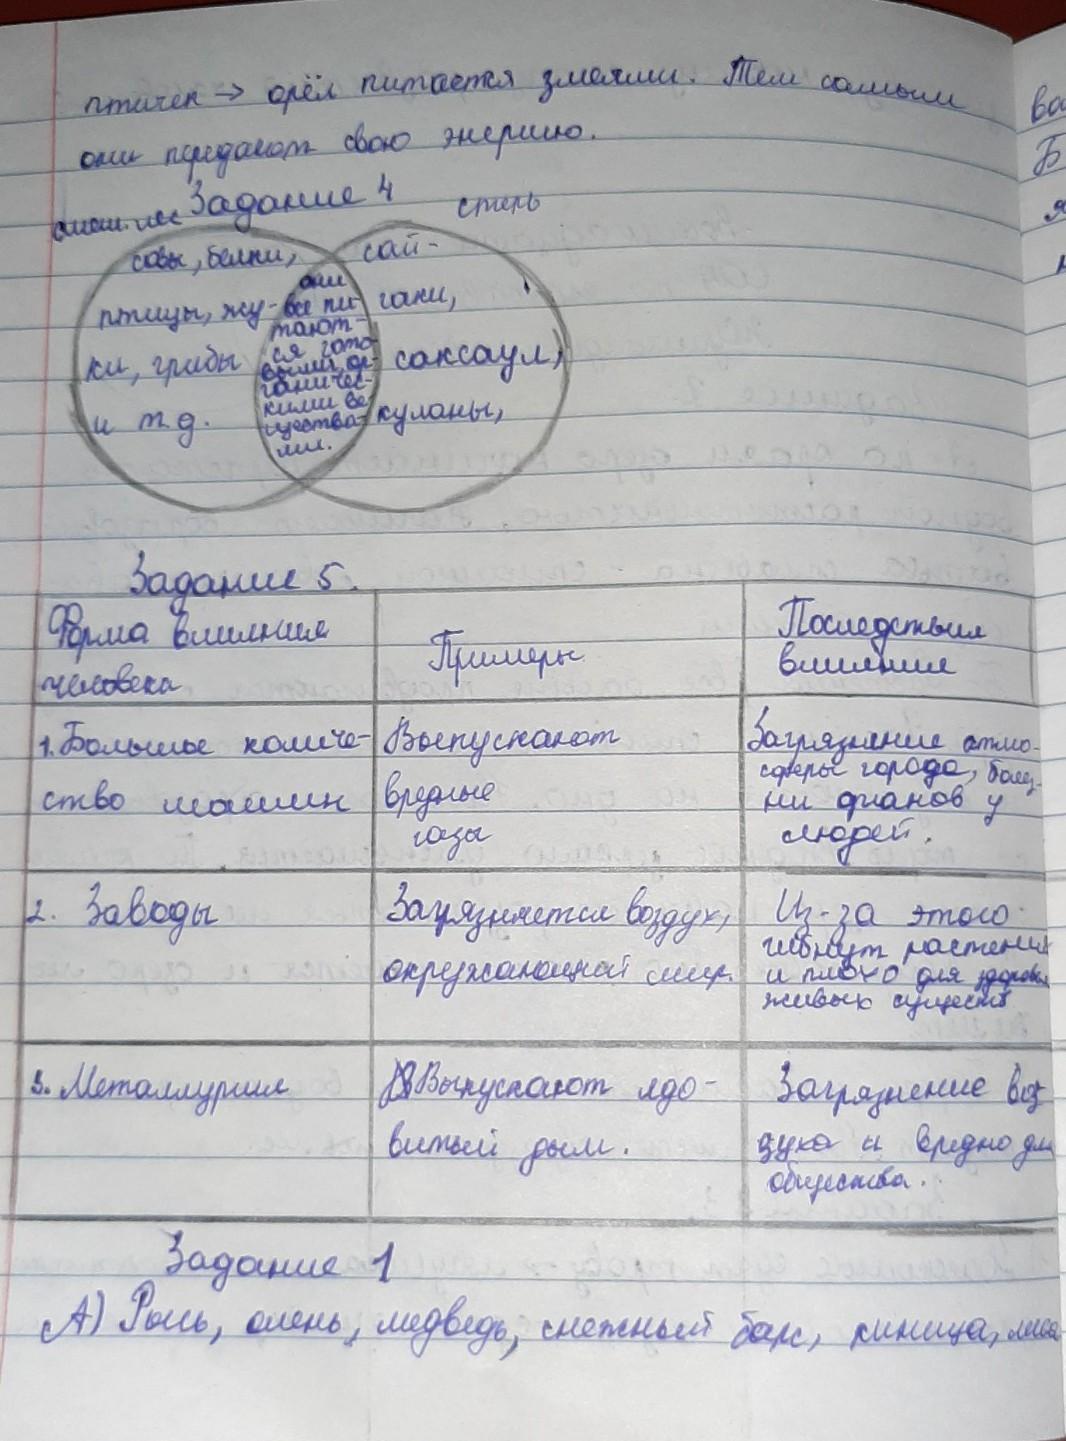 птичек → орёл питается змеями. Тем самым
они передают свою энергию.
Задание 4
смеш. лес
степь
совы, белки,
птицы, жу-
ки, грибы
и т.д.
они
все пи-
тают-
ся гото-
выми ор-
ганичес-
кими ве-
щества-
ми.
сай-
гаки,
саксаул,
куланы,
Задание 5.
Форма влияния
человека
Примеры
Последствия
влияния
1. Большое количе-
ство машин
Выпускают
вредные
газы
Загрязнение атмо-
сферы города, болез-
ни органов у
людей.
2. Заводы
Загрязняется воздух,
окружающий мир.
Из-за этого
гибнут растения
и плохо для здоровья
живых существ
3. Металлургия
Выпускают ядо-
витый дым.
Загрязнение воз-
духа и вредно для
общества.
Задание 1
А) Рысь, олень, медведь, снежный барс, куница, лиса